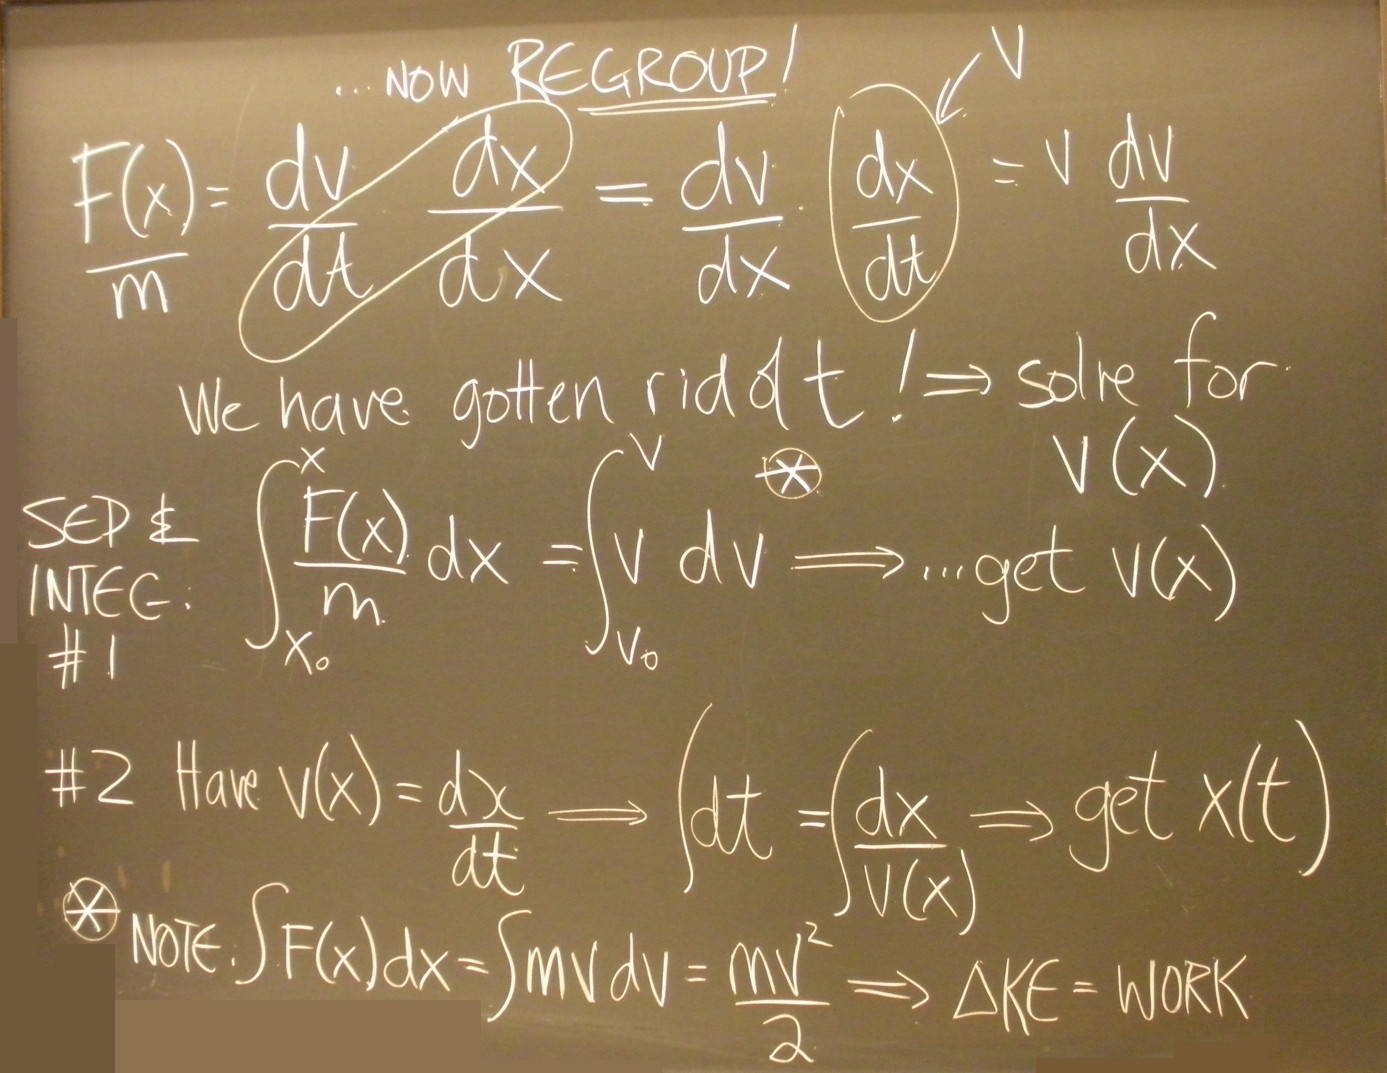 ...NOW REGROUP! V
F(x)/m = dv/dt dx/dx = dv/dx · dx/dt = v dv/dx
We have gotten rid of t! ⇒ solve for
v(x).
SEP & INTEG: #1 ∫_{x₀}^{x} F(x)/m dx = ∫_{v₀}^{v} v dv ⊛ ⟹ ...get v(x)
#2 Have v(x) = dx/dt ⟹ ∫dt = ∫ dx/v(x) ⇒ get x(t)
⊛ NOTE: ∫F(x)dx = ∫mv dv = mv²/2 ⟹ ΔKE = WORK